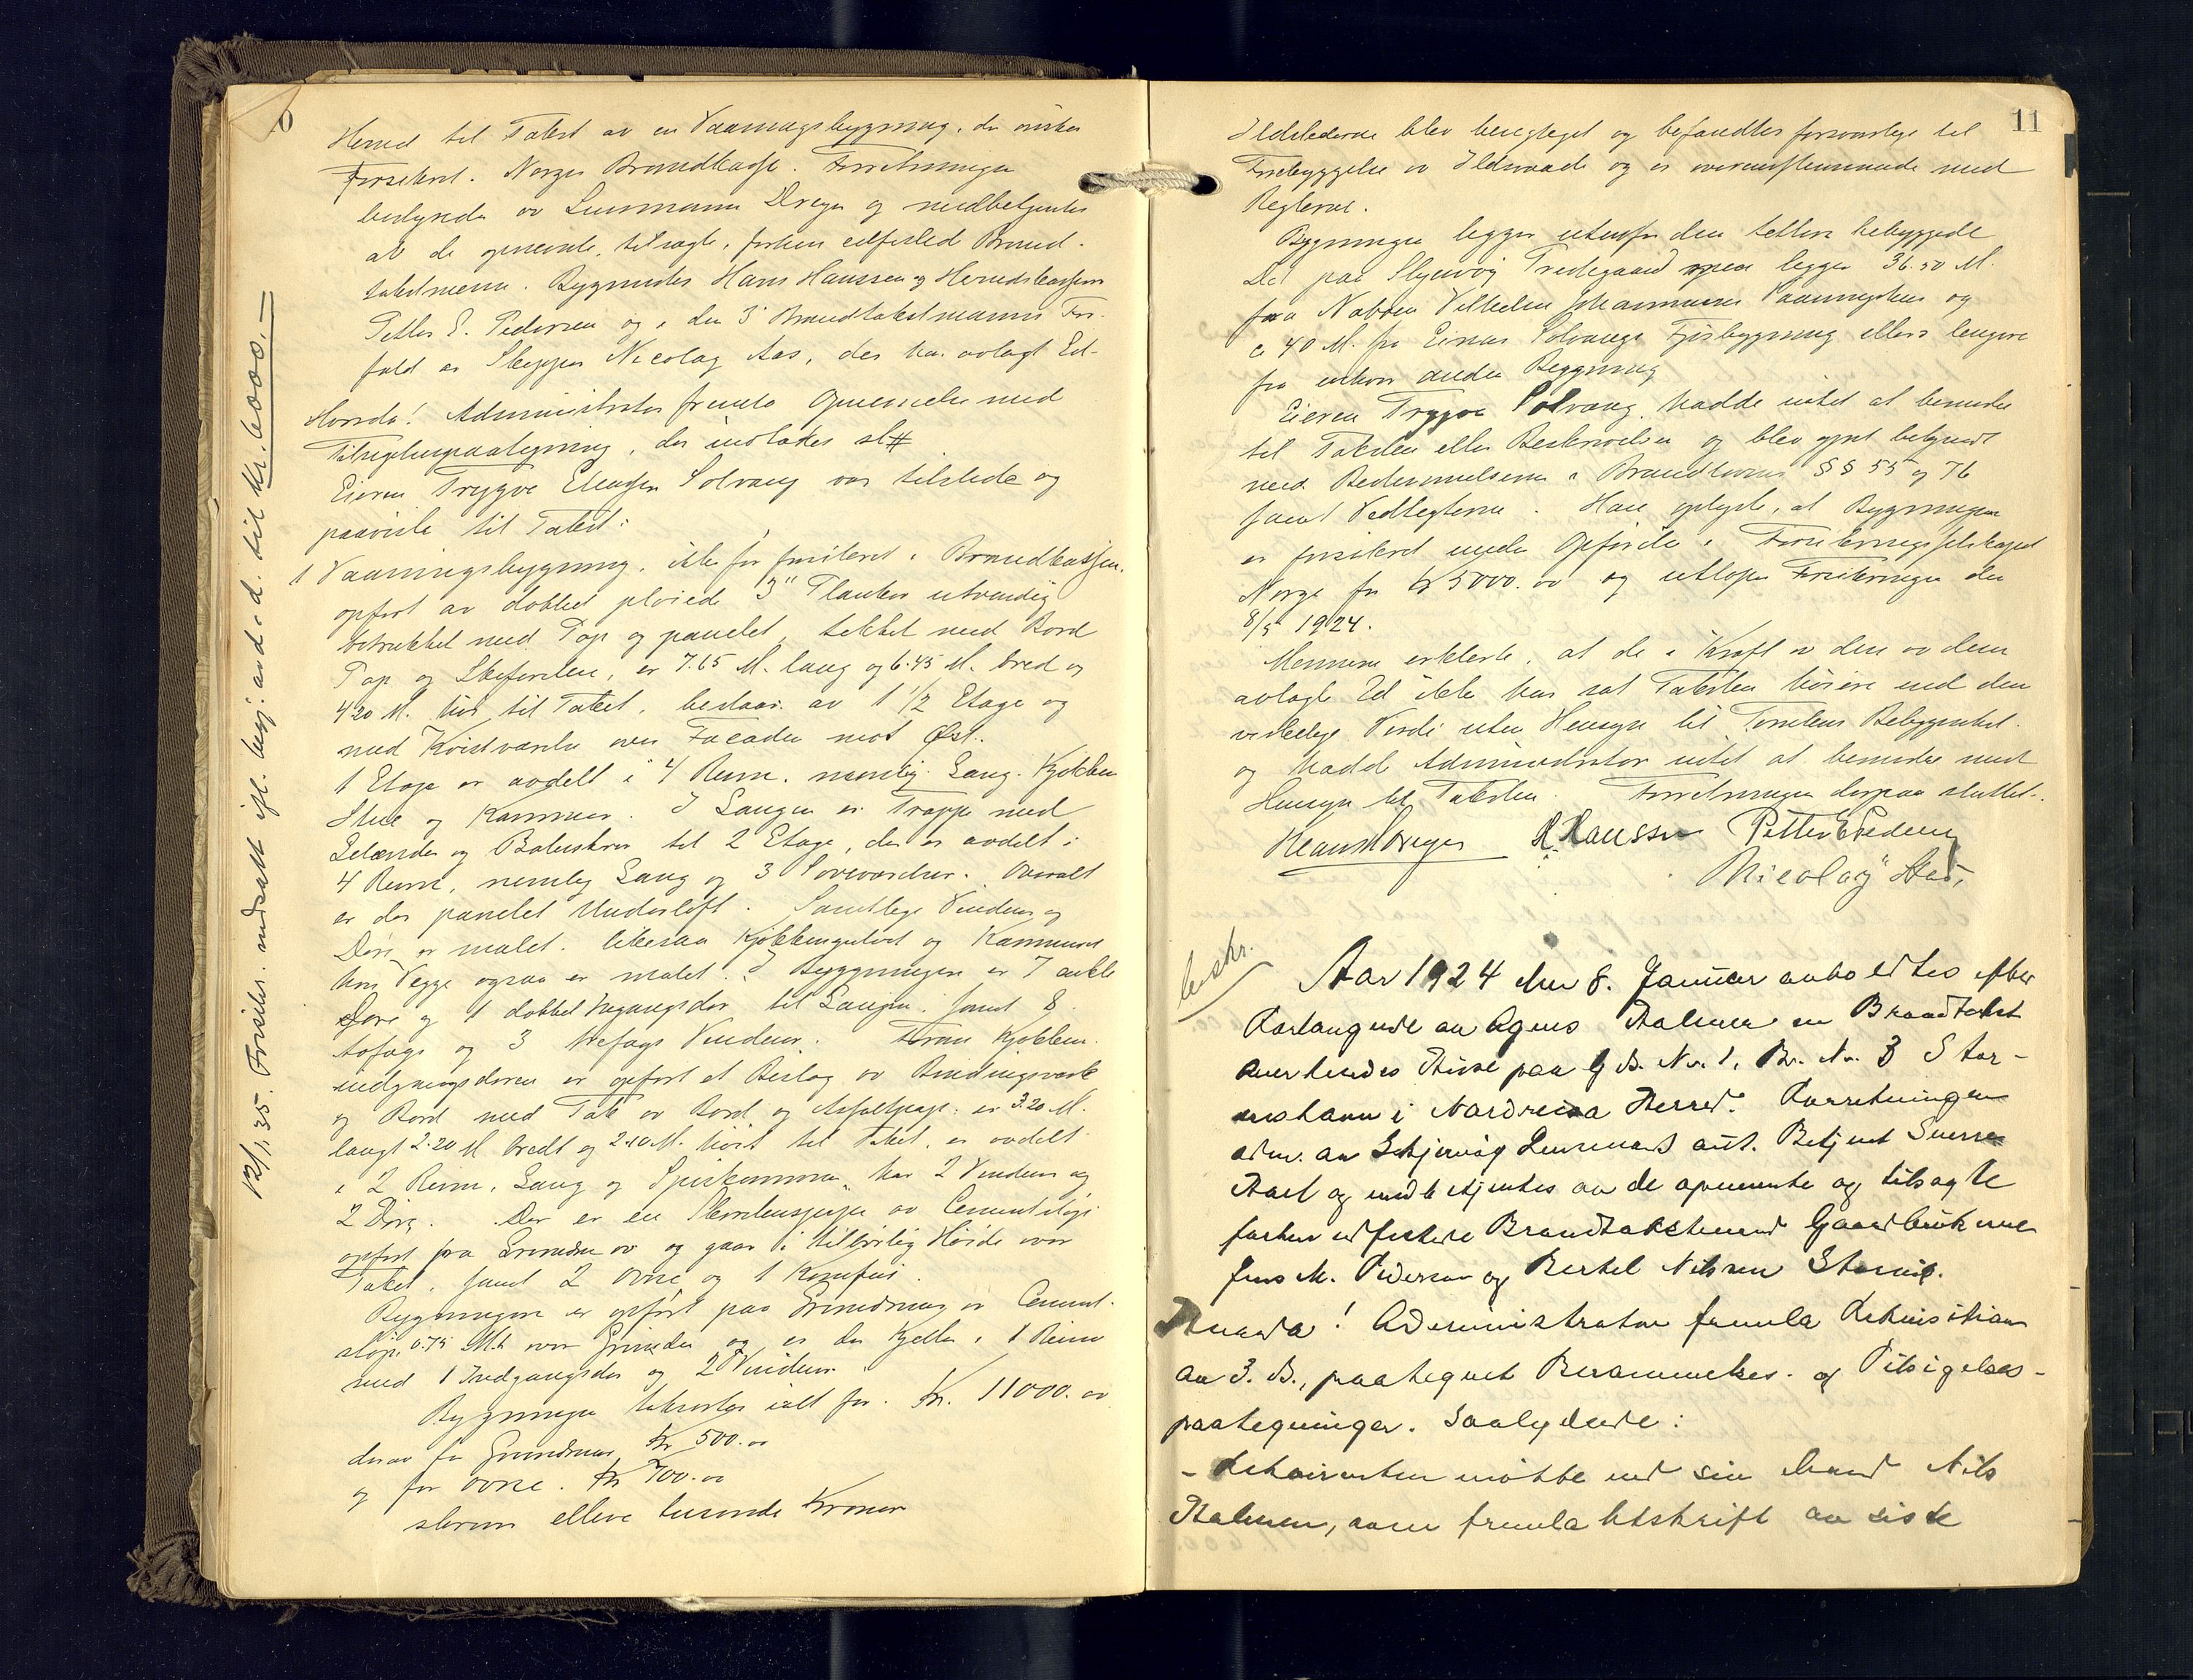 Herred til Takst av en Vaaningsbygning, der ønskes
Forsikret i Norges Brandkasse. Forretningen
bestyredes av Lensmann Dreyer og medbetjentes
at de opnevnte, tilsagte, forhen edfæsted Brand-
takstmenn. Bygmester Hans Hanssen og Herredskasserer
Petter E. Pedersen og i den 3' Brandtakstmanns For-
fald av Skipper Nicolay Aas, der har avlagt Ed.
Hvorda! Administrator fremla Opnevnelse med
Tilsigelsespaategning, der indtakes sl#
Eieren Trygve Eliassen Solvang var tilstede og
paaviste til Takst:
1 Vaaningsbygning, ikke før forsikret i Brandkassen,
opført av dobbel pløiede 3" Planker utvendig
betrukket med Pap og panelet, tekket med Bord
Pap og Skifersten, er 7.65 M. lang og 6.45 M. bred og
4 20 M. høi til Taket, bestaar av 1 1/2 Etage og
med Kvistværelse over Facaden mot Øst.
1 Etage er avdelt i 4 Rum, nemlig Gang, Kjøkken
Stue og Kammer. I Gangen er Trappe med
Gelænder og Balustrer til 2 Etage, der er avdelt i
4 Rum, nemlig Gang og 3 Soveværelser. Overalt
er der panelet Underloft. Samtlige Vinduer og
Døre er malet, likesaa Kjøkkengulvet og Kammeret
hvis Vegge ogsaa er malet. I Bygningen er 7 enkle
Døre og 1 dobbel Indgangsdør til Gangen, samt 8
tofags og 3 trefags Vinduer. Foran Kjøkken-
indgangsdøren er opført et Bislag av Bindingsverk
og Bord med Tak av Bord og Asfaltpap: er 3.20 M.
langt 2.20 M bredt og 2.10 M. høit til Taket, er avdelt
i 2 Rum, Gang og Spiskammer, har 2 Vinduer og
2 Døre. Der er en Skorstenspipe av Cementstøp
opført fra Grunden av og gaar i tilbørlig Høide over
Taket, samt 2 Ovne og 1 Komfur.
Bygningen er opført paa Grundmur av Cement-
støp, 0.75 M.h over Grunden og er der Kjelder i 1 Rum
med 1 Indgangsdør og 2 Vinduer.
Bygningen takseres ialt for Kr. 11000.00
derav for Grundmur Kr 500.00
og for Ovne. Kr 700.00
skriver elleve tusende Kroner
12/1, 35. Forsikr. nedsatt ifl. begj. av d. d. til kr. 6000.—
11
Ildstederne blev besigtiget og befandtes forsvarlige til
Forebyggelse av Ildsvaade og er overensstemmende med
Reglerne.
Bygningen ligger utenfor den tettere bebyggede
Del paa Skjervøy Tredegaard og ligger 36.50 M.
fra Naboen Vilhelm Johannesens Vaaningshus og
ca 40 M. fra Einar Solvangs Fjøsbygning ellers lengere
fra enhver anden Bygning
Eieren Trygve Solvang hadde intet at bemerke
til Taksten eller Beskrivelsen og blev gjort bekjendt
med Bestemmelserne i Brandlovens §§ 55 og 76
samt Vedtegterne. Han oplyste, at Bygningen
er forsikret under Opførelse i Forsikringsselskapet
Norge for Kr 5000.00 og utløper Forsikringen den
8/5 1924.
Mennene erklærte, at de i Kraft av den av dem
avlagte Ed ikke har sat Taksten høiere end den
virkelige Verdi uten Hensyn til Tomtens Beliggenhet.
og hadde Administrator intet at bemerke med
Hensyn til Taksten. Forretningen derpaa sluttet.
Hans Dreyer H. Hanssen Petter E Pedersen
Nicolay Aas,
beskr.
Aar 1924 den 8. Januar avholdtes efter
Forlangende av Agnes Halmen en Brandtakst
over hendes Huse paa G. B. Nr. 1, Br. Nr. 3 Stor-
i Nordreisa Herred. Forretningen
adm. av Skjervøy Lensmand aut. Betjent Sverre
og medbetjentes av de opnevnte og tilsagte
forhen edfestede Brandtakstmenn Gaardbrukerne
Jens M. Pedersen og Bertel Nilsen Storvik.
Hvorda! Administrator fremla Rekvisition
av 3. ds., paategnet Berammelses- og Tilsigelses-
paategninger. Saalydende:
- Rekvirenten møtte ved sin Mand Nils
Halmen, som fremla Utskrift av siste